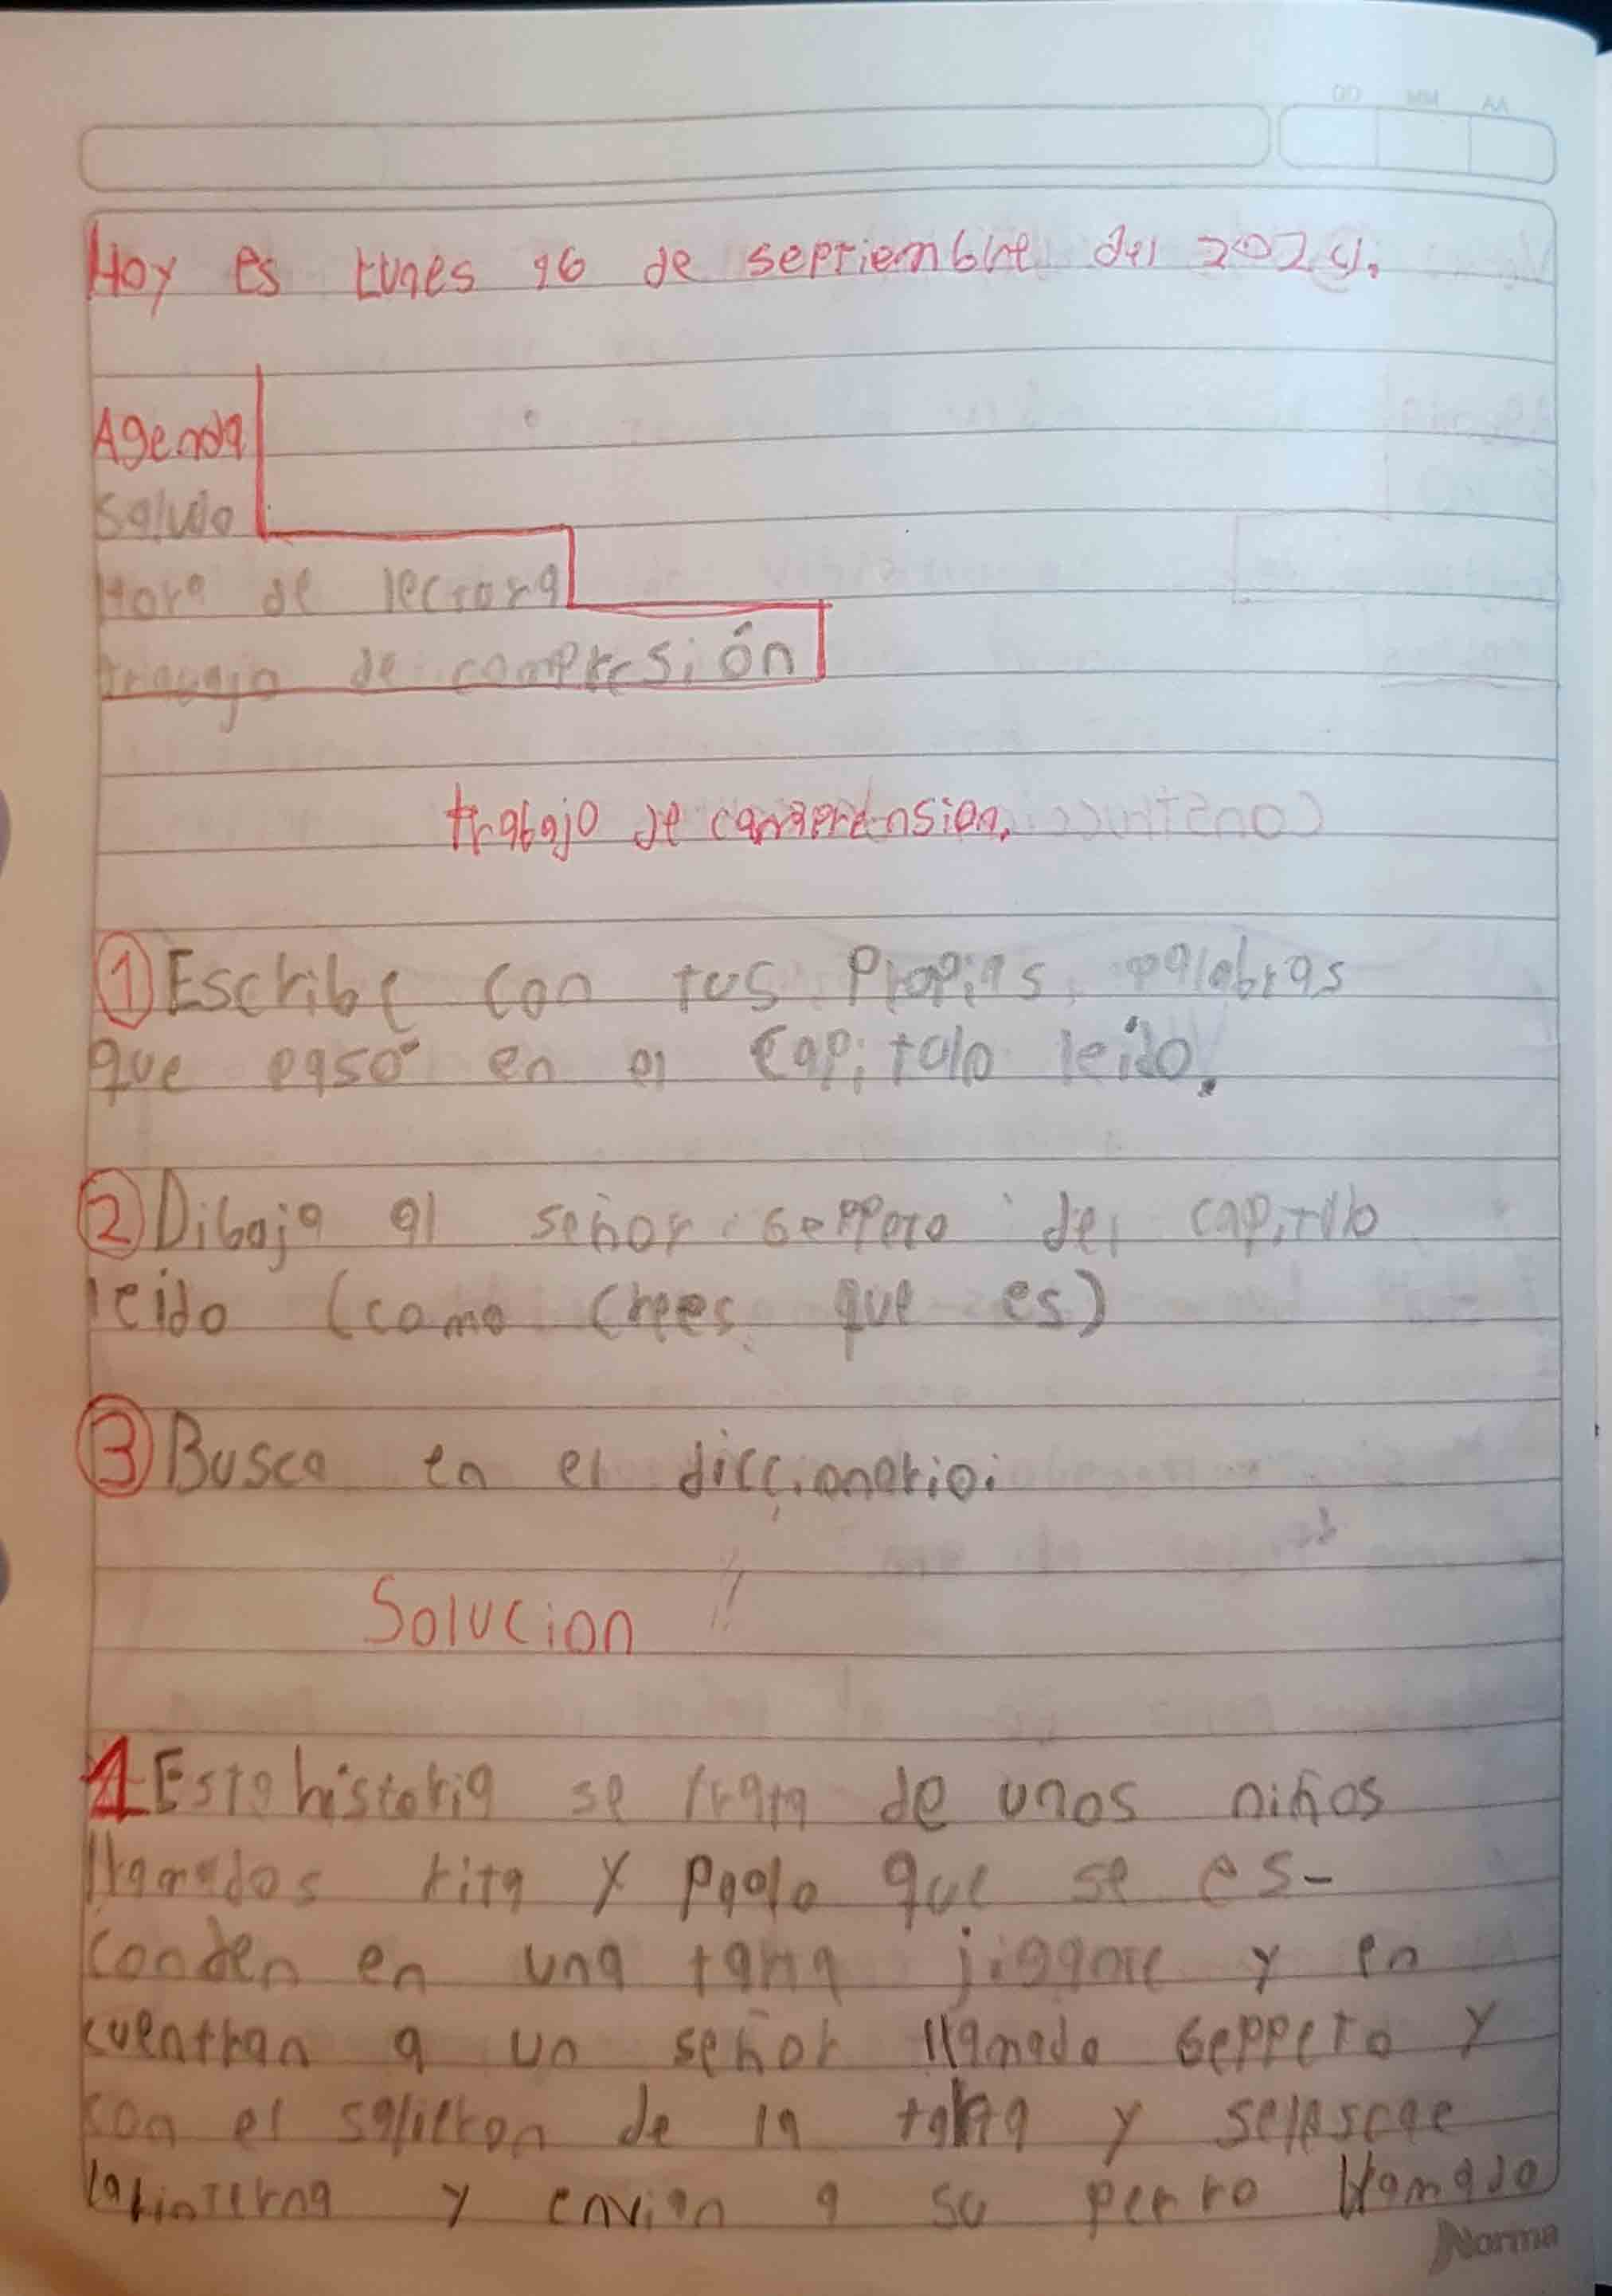 DD MM AA
Hoy es Lunes 16 de septiembre del 2024.
Agenda
Saludo
Hora de lectora
travajo de compresión
trabajo de comprension.
1 Escribe con tus Propias palabras
que pasó en el Capitolo leído.
2 Dibuja al señor Geppeto del capitulo
leido (como crees que es)
3 Busca en el diccionario:
Solucion
1 Esta historia se trata de unos niños
llamados rita y Paolo que se es-
conden en una tana jiggante y en
cuentran a un señor llamado Geppeto y
con el salieron de la y selescae
lalinterna y envian a su perro llamado
Norma